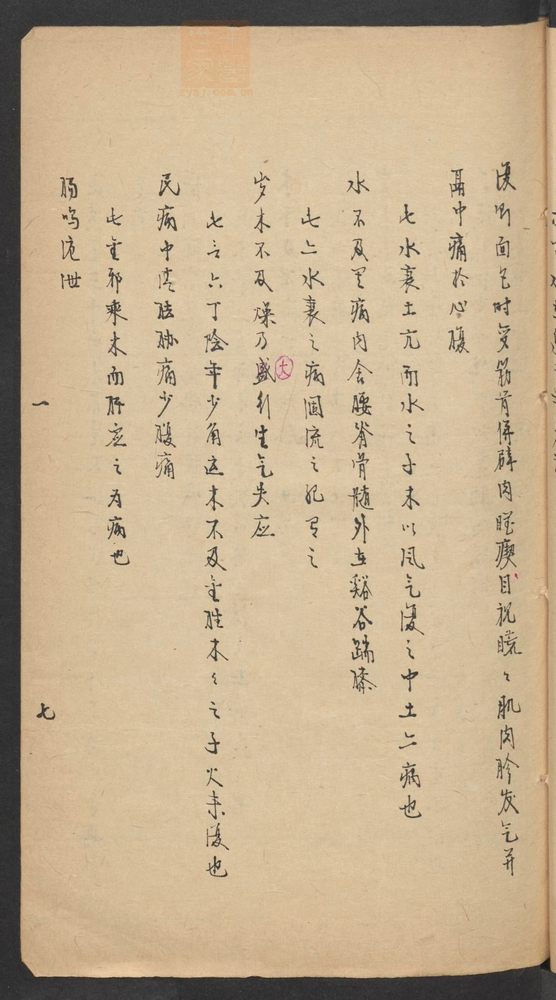 復则面色时变筋骨併辟肉瞤瘛目视䀮々肌肉胗发气并
鬲中痛於心腹
此水衰土亢而水之子木以风气復之中土亦病也
水不及其病内舍腰脊骨髓外在谿谷踹膝
此亦水衰之病固流之纪有之
岁木不及燥乃大盛行生气失应
此言六丁阴年少角运木不及金胜木々之子火来復也
民病中清胠胁痛少腹痛
此金邪乘木而肝虚之为病也
肠鸣溏泄
一
七